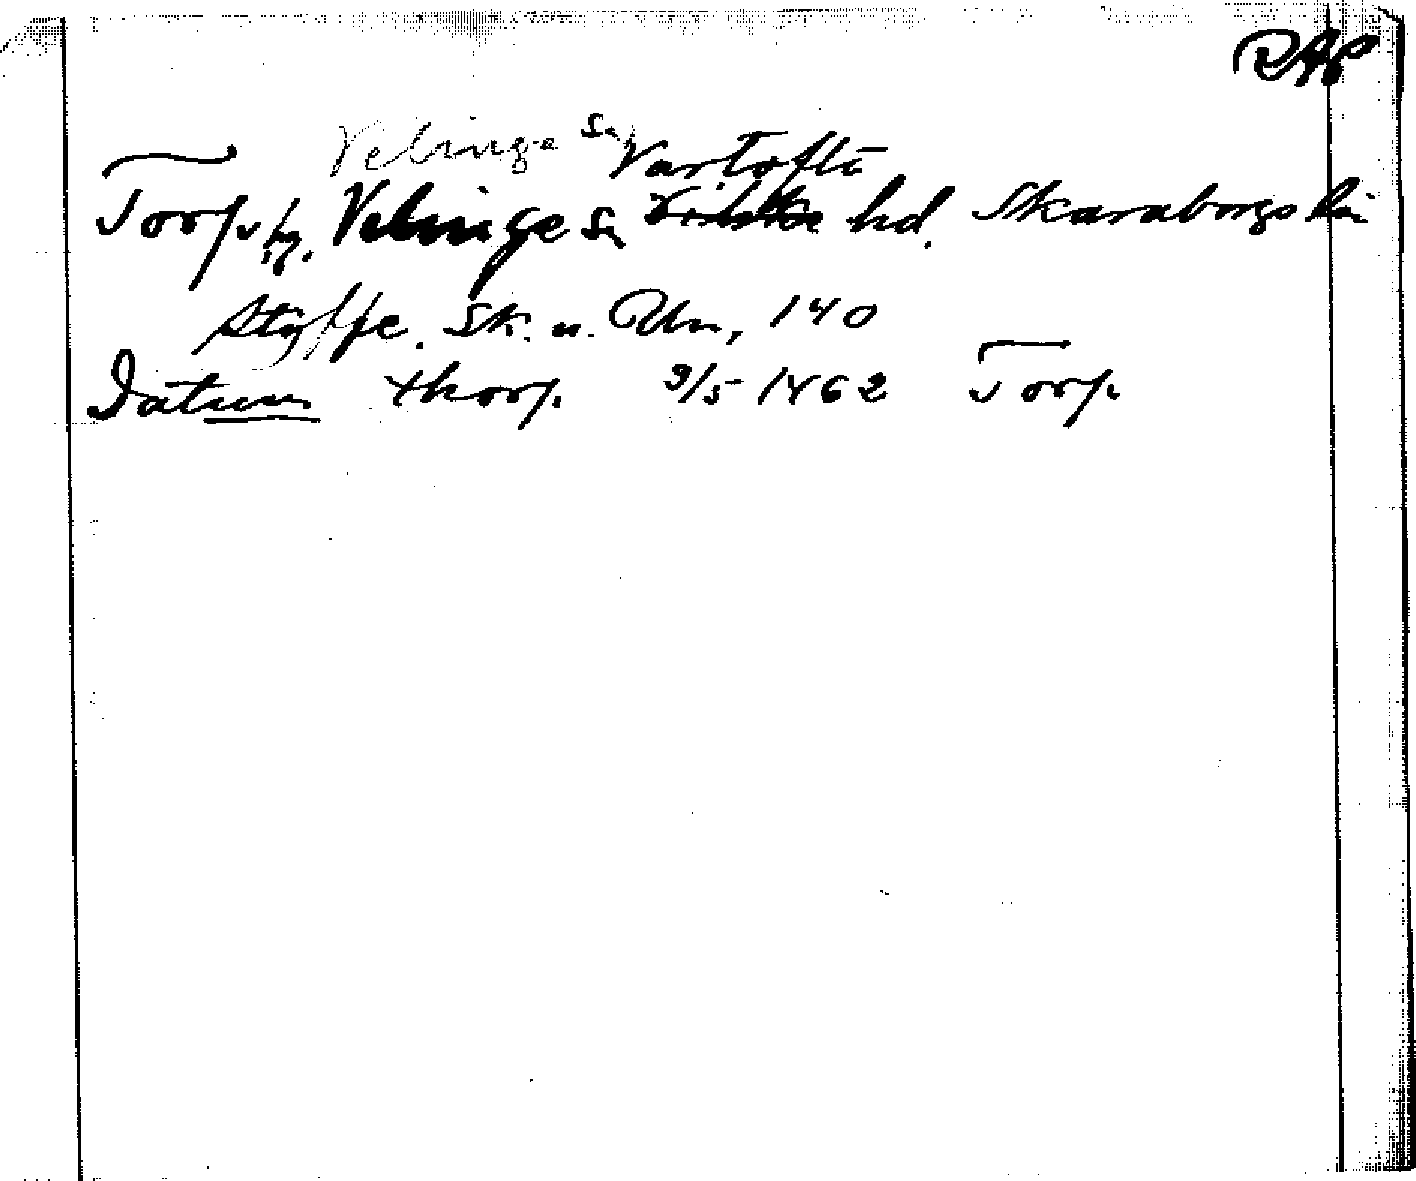 RAP
Velinge Sn Vartofta
Torp, by, Velinge Sn hd. Skaraborgs län
Styffe. Sk. u. Un, 140
Datum thorp. 9/5 1462 Torp.